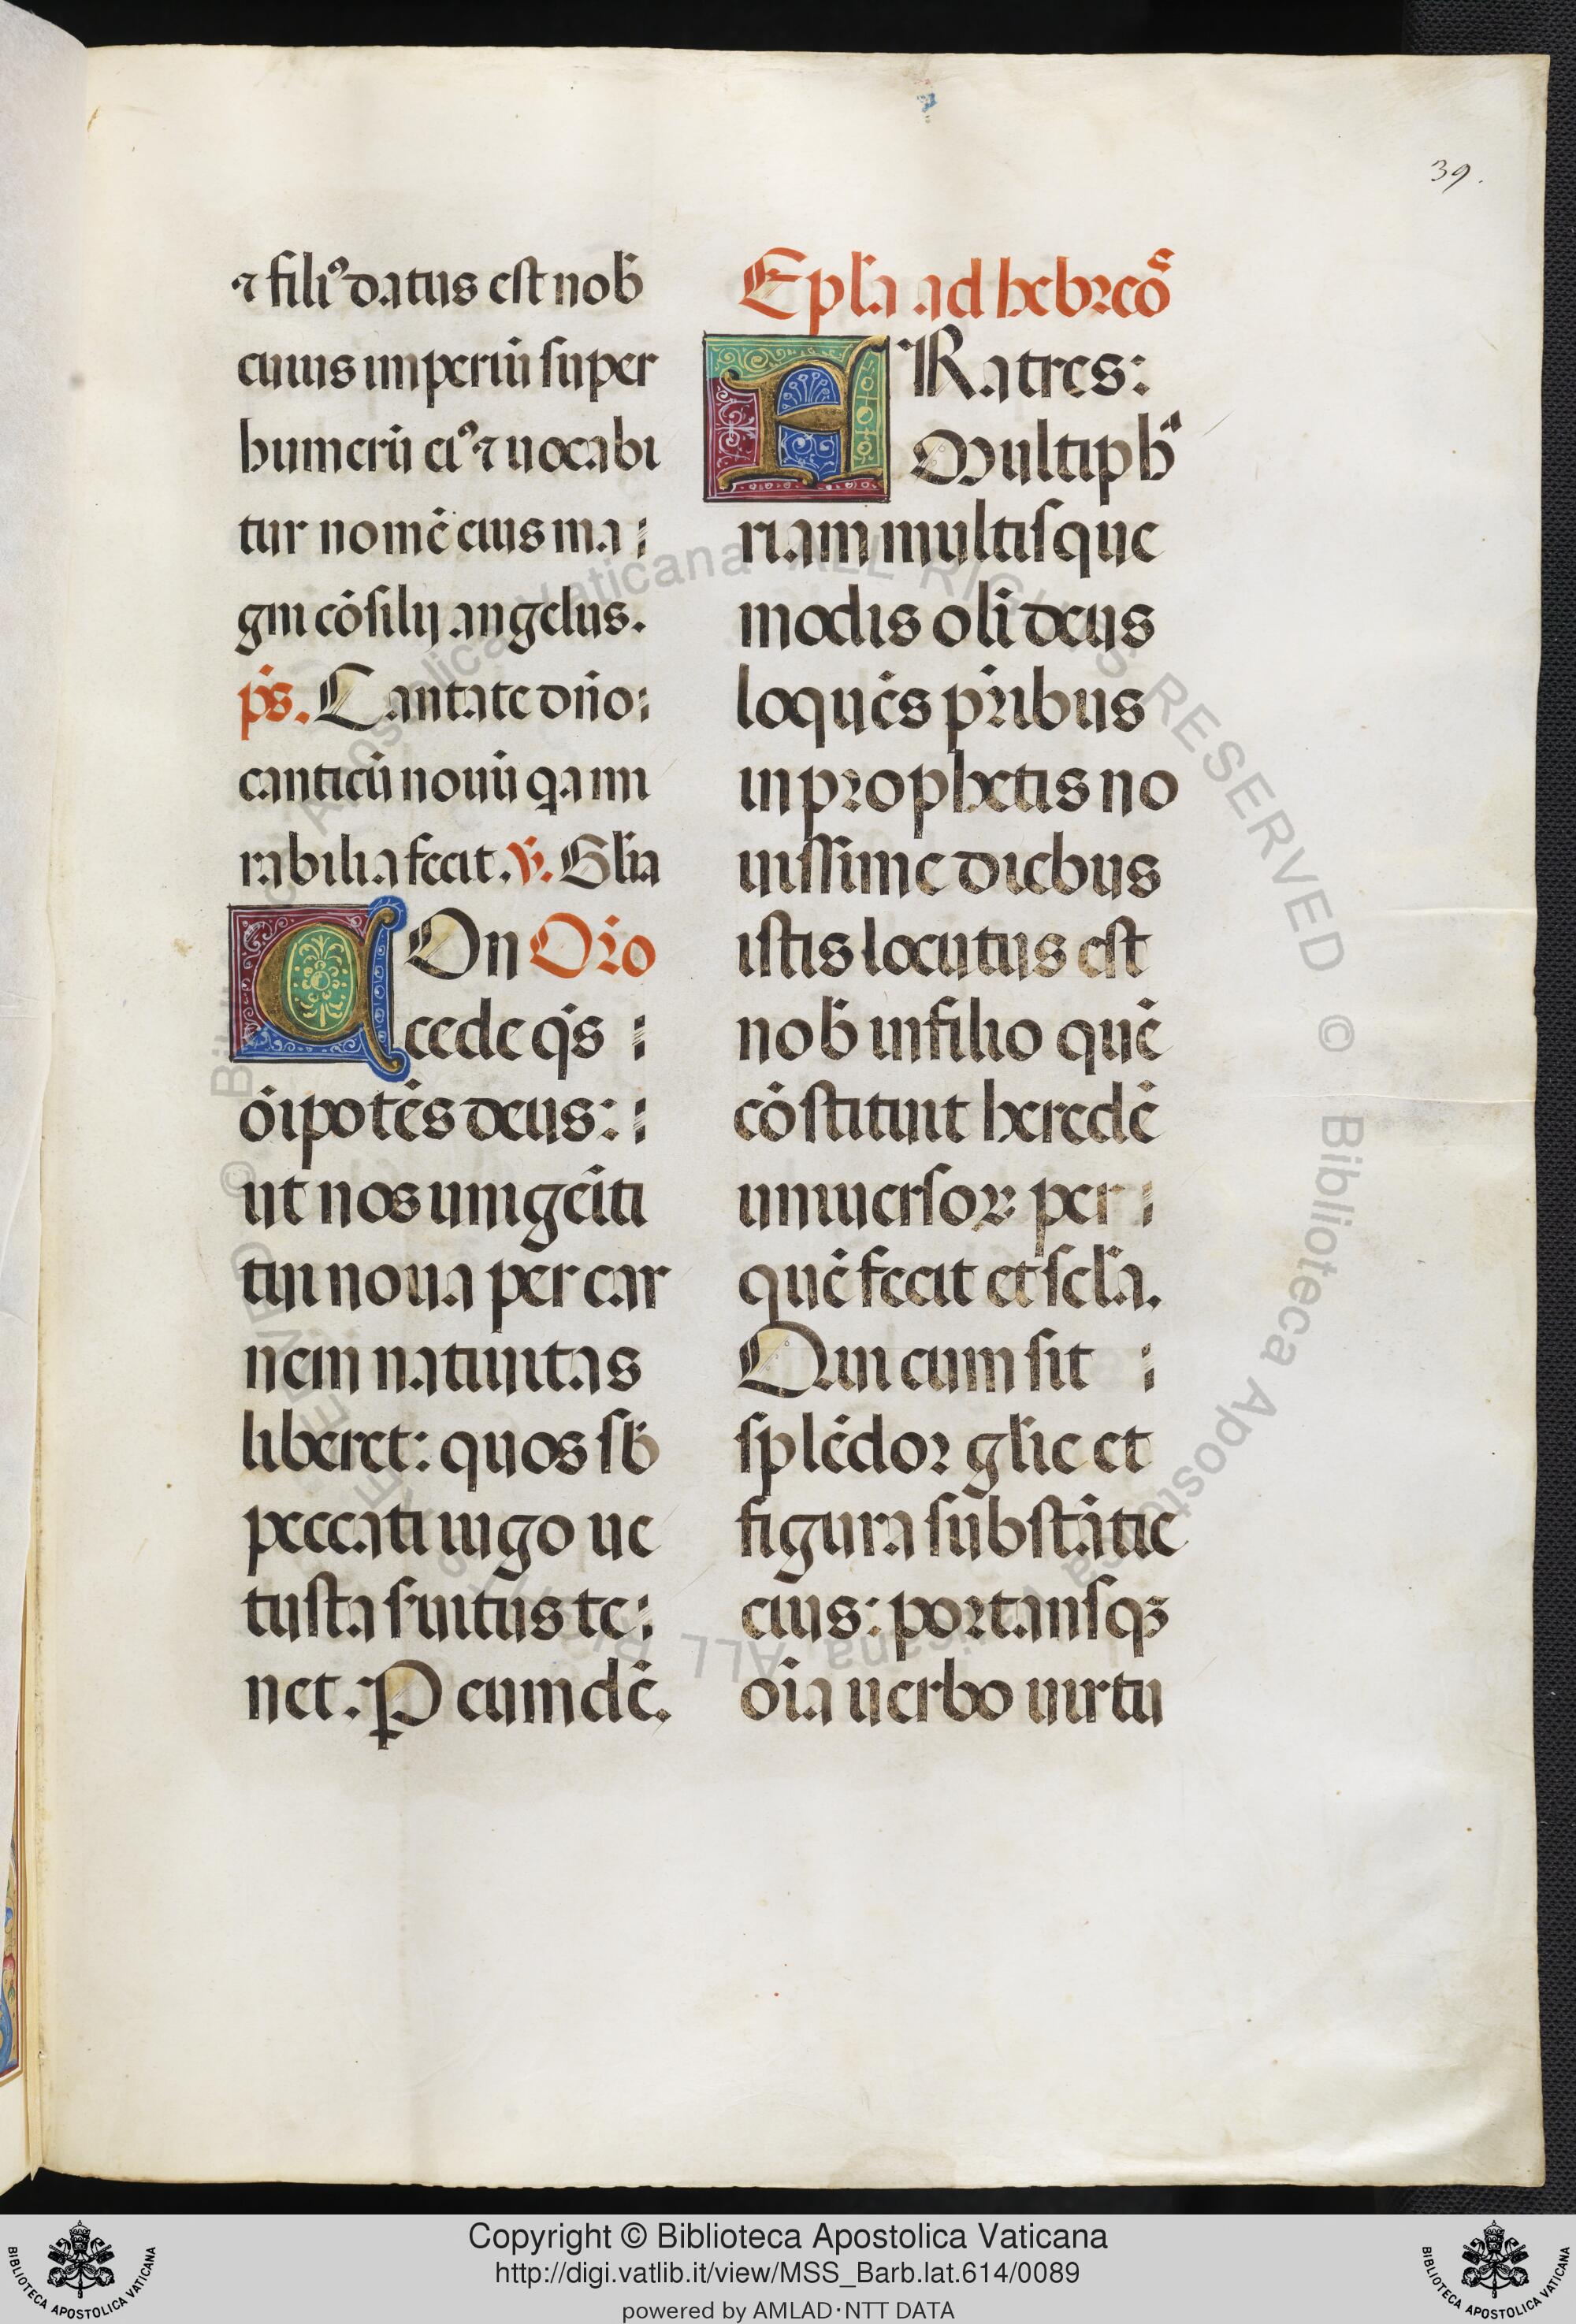 39.
⁊ filiꝰ datus est nob̄
cuius imperiū super
humerū eiꝰ ⁊ uocabi
tur nomē eius ma
gni cōsilij angelus.
p̄s. Cantate dn̄o
canticū nouū q̄a mi
rabilia fecit. ℣. Gl̄ia
COn Or̄o
cede q̄s
ōipotēs deus:
ut nos unigēiti
tui noua per car
nem natiuitas
liberet: quos sb̄
peccati iugo ue
tusta s̄uitus te
net. P eumdē.
Epl̄a ad hebreoͬ
FRatres:
Multiphͣ
riam multisque
modis oli᷑ deus
loquēs pr̄ibus
in prophetis no
uissime diebus
istis locutus est
nob̄ in filio quē
cōstituit heredē
uniuersoꝝ per
quē fecit et scl̄a.
Qui cum sit
splēdor gl̄ie et
figura substātie
eius: portansqꝫ
oīa uerbo uirtu
Copyright © Biblioteca Apostolica Vaticana
http://digi.vatlib.it/view/MSS_Barb.lat.614/0089
powered by AMLAD·NTT DATA
BIBLIOTECA APOSTOLICA VATICANA
BIBLIOTECA APOSTOLICA VATICANA